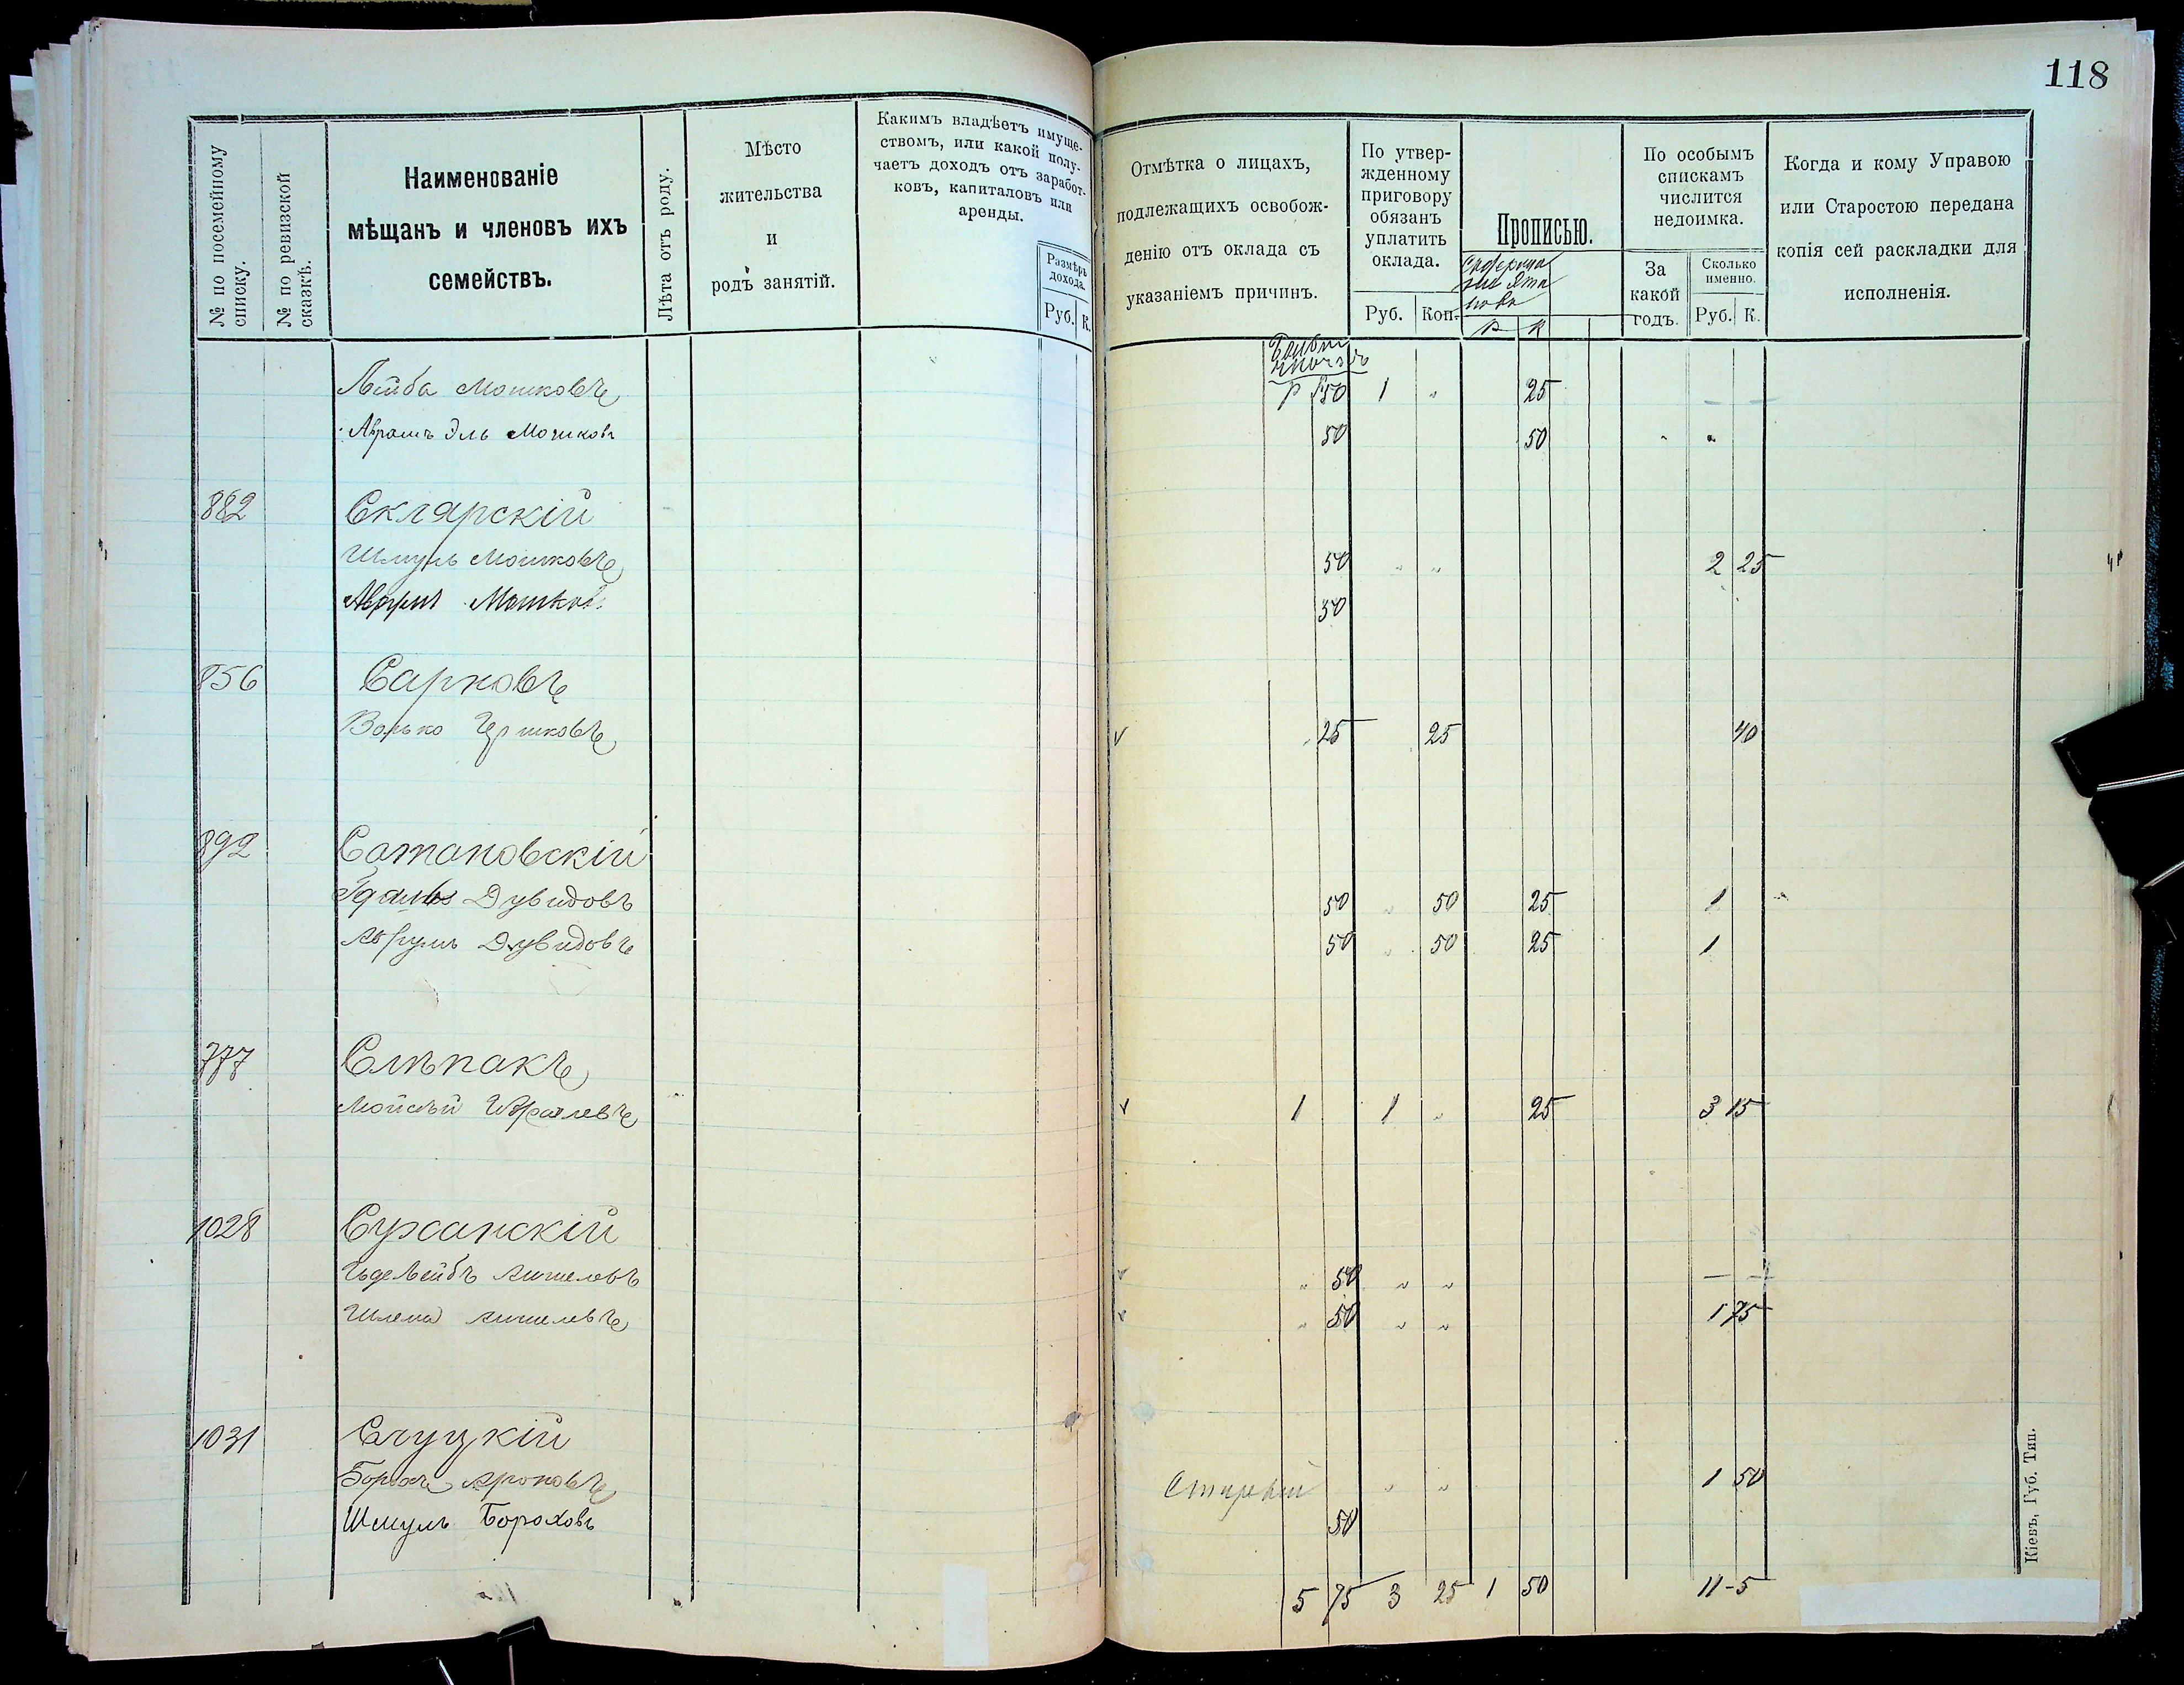 118
№ по посемейному списку.
№ по ревизской сказкѣ.
Наименованіе
мѣщанъ и членовъ ихъ
семействъ.
Лѣта отъ роду.
Мѣсто
жительства
и
родъ занятій.
Какимъ владѣетъ имуще-
ствомъ, или какой полу-
чаетъ доходъ отъ заработ-
ковъ, капиталовъ или
аренды.
Размѣръ
дохода.
Руб. К.
Отмѣтка о лицахъ,
подлежащихъ освобож-
денію отъ оклада съ
указаніемъ причинъ.
По утвер-
жденному
приговору
обязанъ
уплатить
оклада.
Руб. Коп.
Прописью.
Р К
По особымъ
спискамъ
числится
недоимка.
За
какой
годъ.
Сколько
именно.
Руб. К.
Когда и кому Управою
или Старостою передана
копія сей раскладки для
исполненія.
Лейба Мошковъ 50 1 " 25 — —
Абрамъ Эль Мошковъ 50 50 " "
882 Склярскій
Шмуль Мошковъ 50 " " 2 25
Мошков. 50
856 Сарновъ
Волько Гершковъ 25 25 40
892 Сатановскій
Дувидовъ 50 " 50 25 1
Абрумъ Дувидовъ 50 " 50 25 1
777 Слѣпакъ
Мойсей Израилевъ 1 1 " 25 3 15
1028 Суханскій
Аншелевъ " 50 " " — —
Шлема Аншелевъ " 50 " " 1 75
1031 Слуцкій
Борохъ Ароновъ " " 1 50
Шмуль Бороховъ 50
5 75 3 25 1 50 11-5
Кіевъ, Губ. Тип.